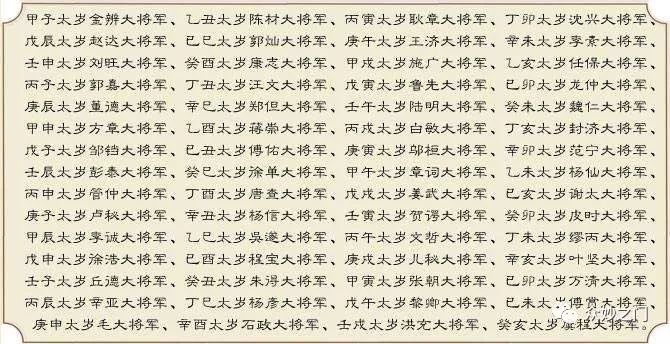 甲子太岁金辨大将军、乙丑太岁陈材大将军、丙寅太岁耿章大将军、丁卯太岁沈兴大将军
戊辰太岁赵达大将军、己巳太岁郭灿大将军、庚午太岁王济大将军、辛未太岁李素大将军、
壬申太岁刘旺大将军、癸酉太岁康志大将军、甲戌太岁施广大将军、乙亥太岁任保大将军、
丙子太岁郭嘉大将军、丁丑太岁汪文大将军、戊寅太岁鲁先大将军、己卯太岁龙仲大将军、
庚辰太岁董德大将军、辛巳太岁郑但大将军、壬午太岁陆明大将军、癸未太岁魏仁大将军、
甲申太岁方章大将军、乙酉太岁蒋崇大将军、丙戌太岁白敏大将军、丁亥太岁封济大将军、
戊子太岁邹铛大将军、己丑太岁傅佑大将军、庚寅太岁邬桓大将军、辛卯太岁范宁大将军、
壬辰太岁彭泰大将军、癸巳太岁徐单大将军、甲午太岁章词大将军、乙未太岁杨仙大将军、
丙申太岁管仲大将军、丁酉太岁唐查大将军、戊戌太岁姜武大将军、己亥太岁谢太大将军、
庚子太岁卢秘大将军、辛丑太岁杨信大将军、壬寅太岁贺谔大将军、癸卯太岁皮时大将军、
甲辰太岁李诚大将军、乙巳太岁吴遂大将军、丙午太岁文哲大将军、丁未太岁缪丙大将军、
戊申太岁徐浩大将军、己酉太岁程宝大将军、庚戌太岁儿秘大将军、辛亥太岁叶坚大将军、
壬子太岁丘德大将军、癸丑太岁朱得大将军、甲寅太岁张朝大将军、己卯太岁万清大将军、
丙辰太岁辛亚大将军、丁巳太岁杨彦大将军、戊午太岁黎卿大将军、己未太岁傅赏大将军、
庚申太岁毛大将军、辛酉太岁石政大将军、壬戌太岁洪充大将军、癸亥太岁虞程大将军。
众妙之门